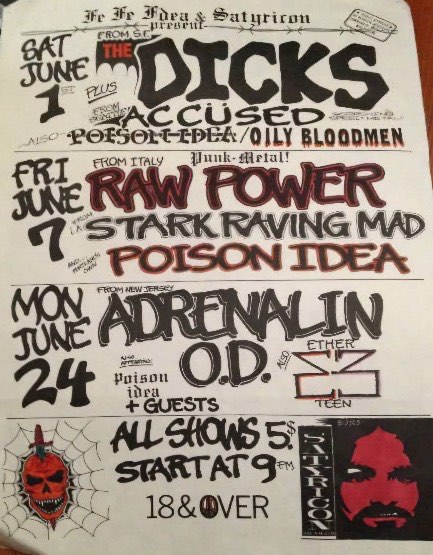 Fe Fe Fdea & Satyricon
present
SAT JUNE 1ST
FROM S.F.
THE DICKS
PLUS
FROM
ACCÜSED
ALSO
POISON IDEA/OILY BLOODMEN
FRI JUNE 7
FROM ITALY
Punk-Metal!
RAW POWER
FROM L.A.
STARK RAVING MAD
AND PORTLAND'S OWN
POISON IDEA
MON JUNE 24
FROM NEW JERSEY
ADRENALIN O.D.
ALSO APPEARING:
Poison idea
+ GUESTS
ALSO
ETHER
TEEN
ALL SHOWS 5$
START AT 9 PM
18 & OVER
SATYRICON